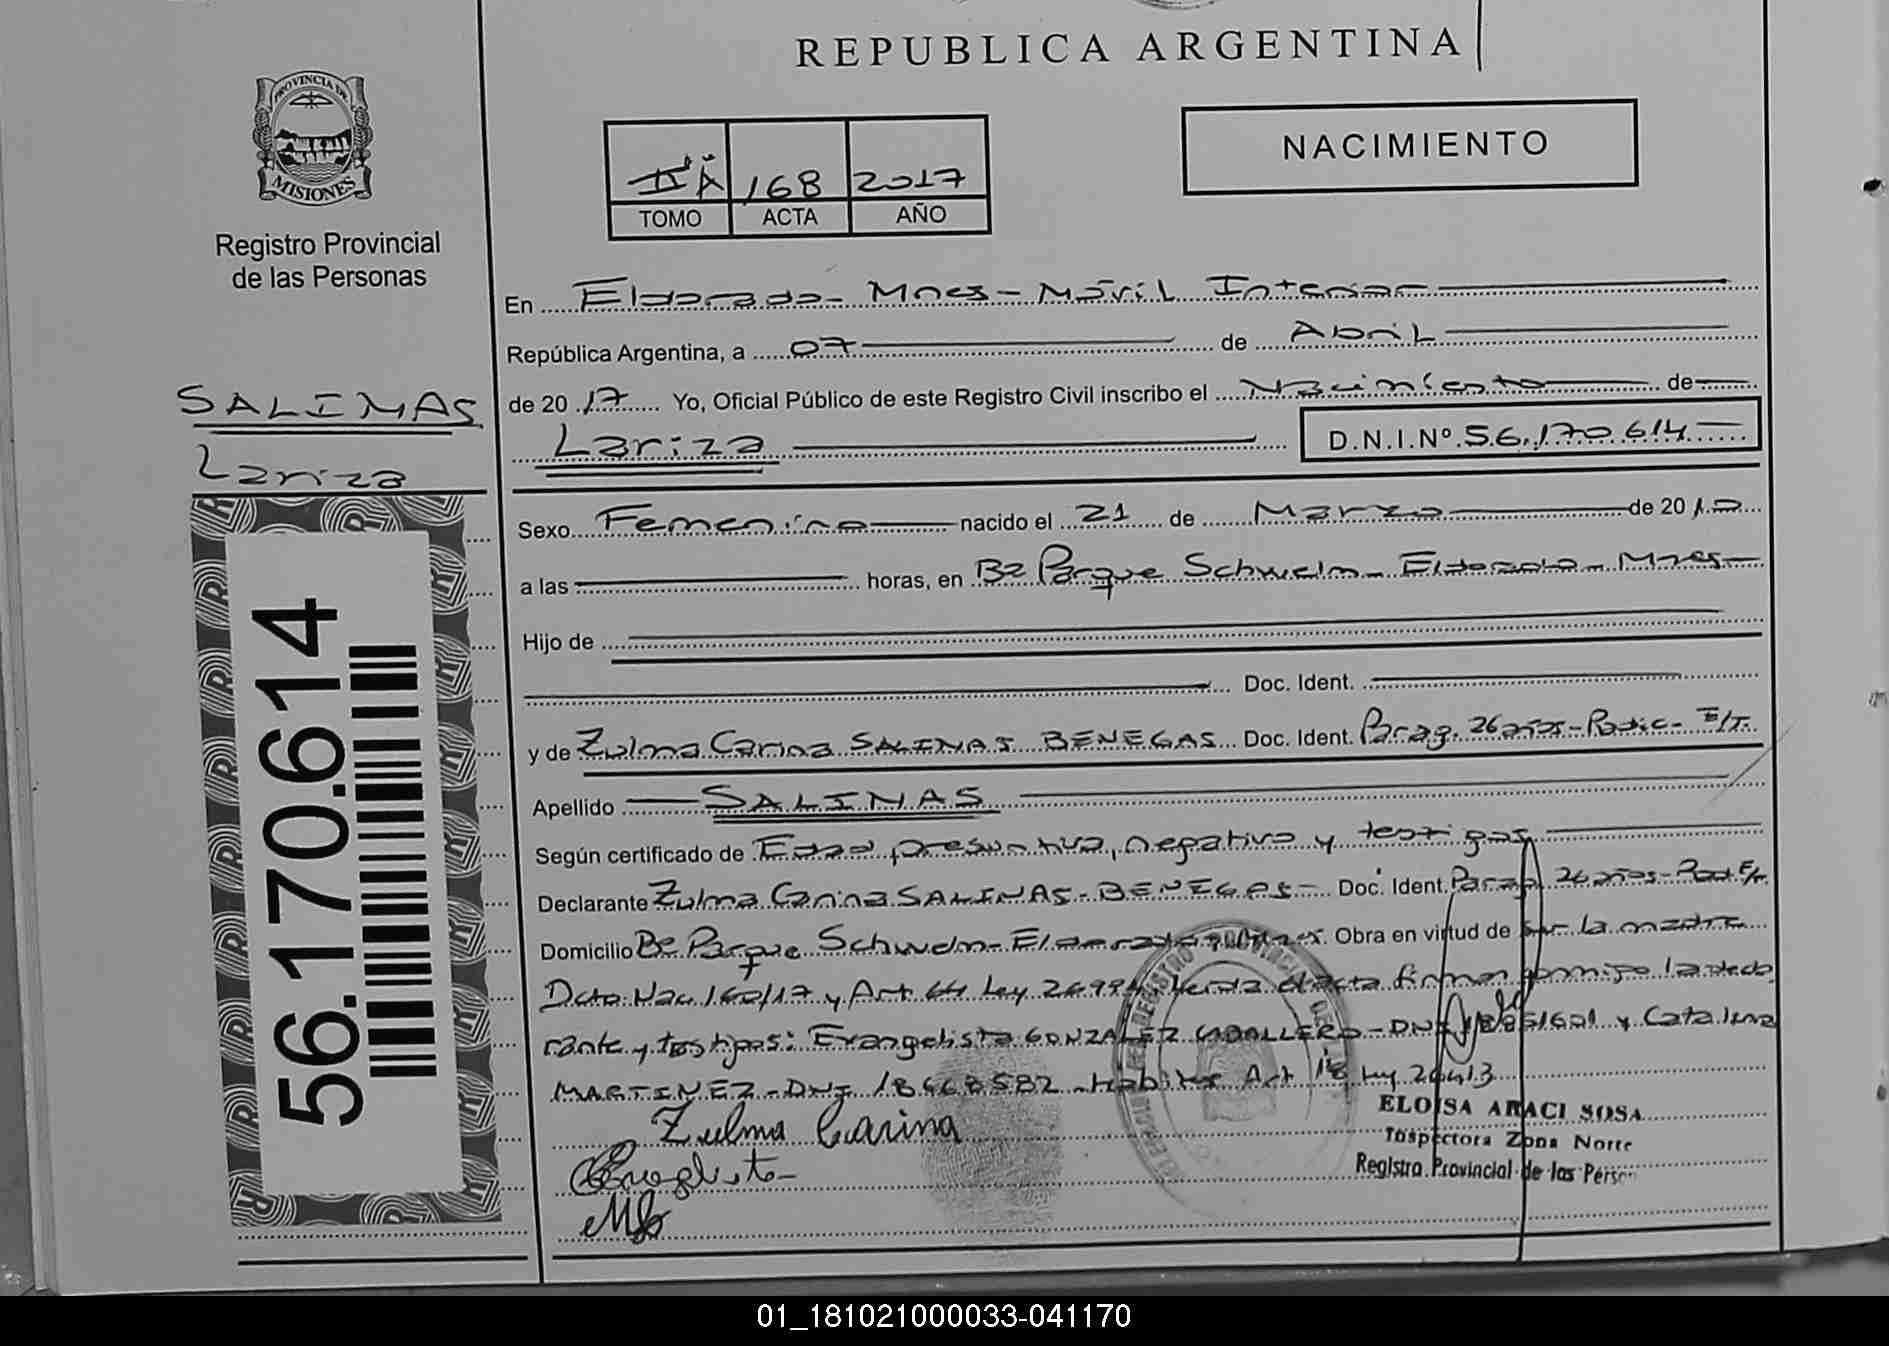 REPUBLICA ARGENTINA
PROVINCIA DE
MISIONES
Registro Provincial
de las Personas
168 2017
TOMO ACTA AÑO
NACIMIENTO
En Eldorado - Mnes - Móvil Interior
República Argentina, a 07 de Abril
SALINAS
Lariza
de 20 17 Yo, Oficial Público de este Registro Civil inscribo el Nacimiento de
Lariza D.N.I.Nº 56.170.614
Sexo Femenino nacido el 21 de Marzo de 20 10
a las horas, en Bº Parque Schwelm - Eldorado - Mnes
Hijo de
Doc. Ident.
y de Zulma Carina SALINAS BENEGAS Doc. Ident. Parag. 26 años - Podic - E/T.
Apellido SALINAS
Según certificado de Edad presuntiva, negativo y testigos
Declarante Zulma Carina SALINAS - BENEGAS - Doc. Ident. Parag 26 años -
Domicilio Bº Parque Schwelm - Eldorado Obra en virtud de ser la madre
Dcto. Nac. 160/17 y Art 64 Ley 26994. el acta firman conmigo la decla
rante y testigos: Evangelista GONZALEZ CABALLERO - DNI y Catalina
MARTINEZ - DNI 18468582 - Art Ley 26413
Zulma Carina
ELOISA ARACI SOSA
Inspectora Zona Norte
Registro Provincial de las Person
56.170.614
01_181021000033-041170